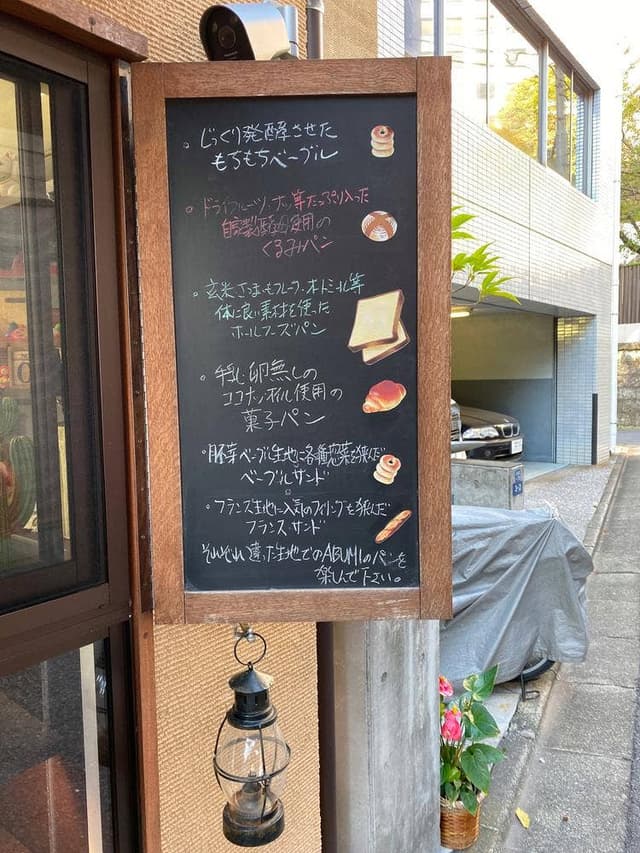 。じっくり発酵させた
もちもちベーグル
。ドライフルーツ、ナッツ等たっぷり入った
自家製酵母使用の
くるみパン
。玄米さつまいもフレーク、オートミール等
体に良い素材を使った
ホールフーズパン
。牛乳・卵無しの
ココナッツオイル使用の
菓子パン
。胚芽ベーグル生地に各種惣菜を挟んだ
ベーグルサンド
。フランス生地に人気のフィリングを挟んだ
フランスサンド
それぞれ違った生地でのABUMIのパンを
楽しんで下さい。